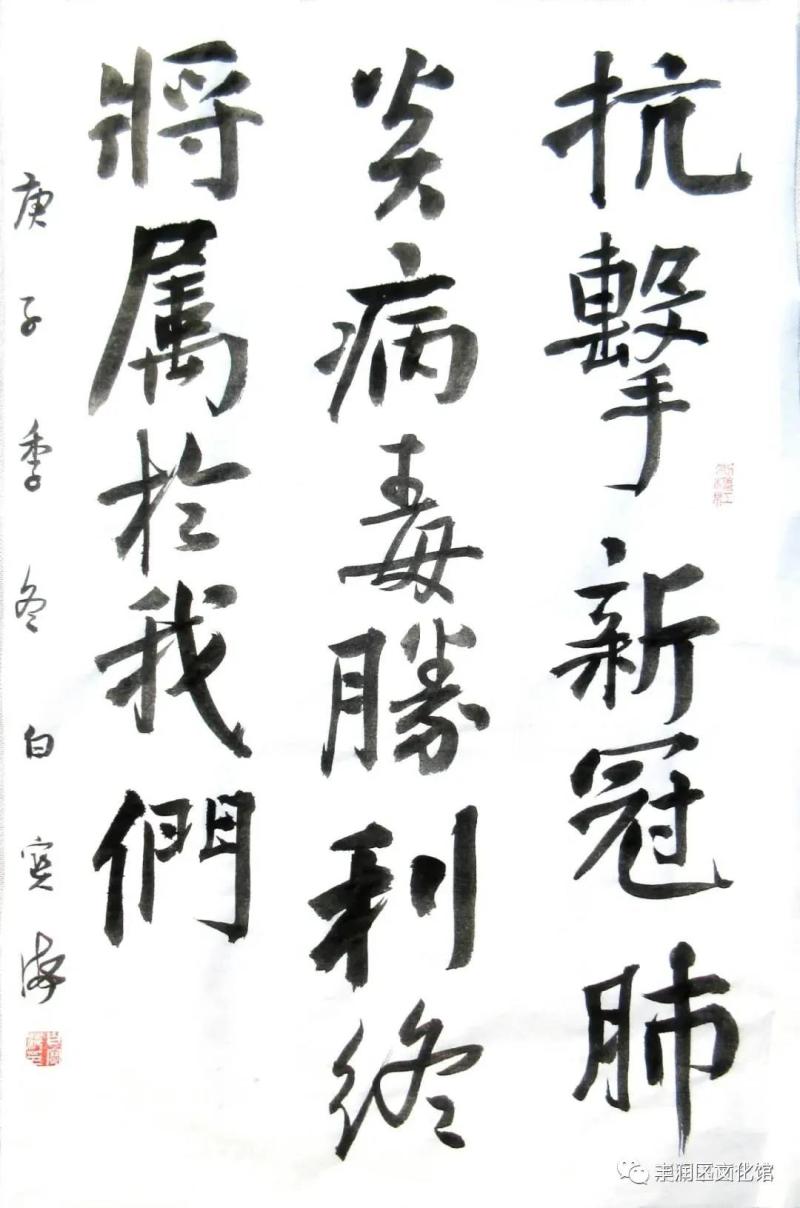 抗擊新冠肺
炎病毒勝利終
將属於我們
庚子季冬白寅海
丰润区文化馆